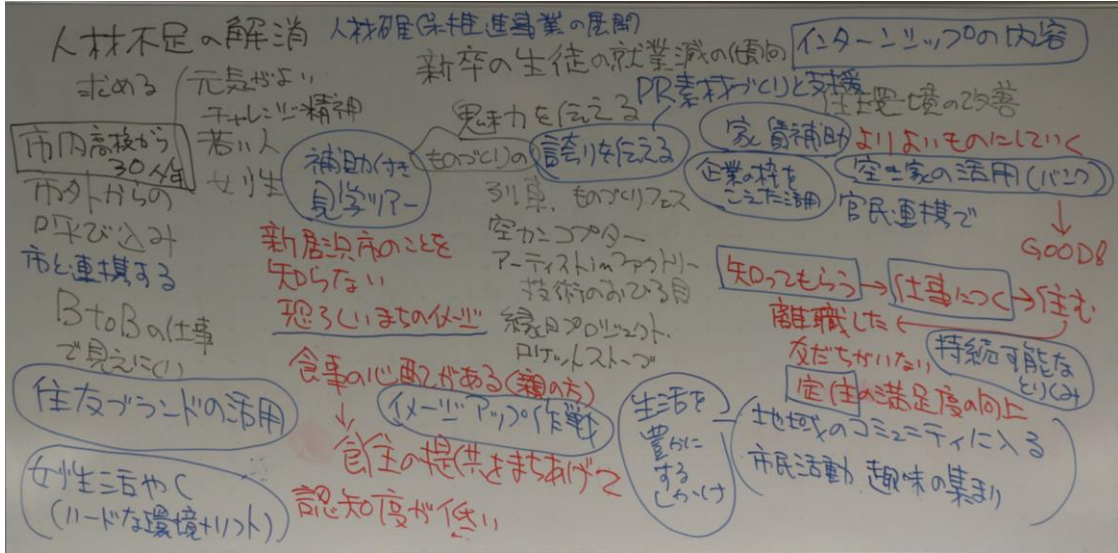 人材不足の解消
人材確保推進事業の展開
新卒の生徒の就業減の傾向
インターンシップの内容
求める
元気がよい
チャレンジ精神
若い人
女性
市内高校から
30人/年
市外からの
呼び込み
市と連携する
BtoBの仕事
で見えにくい
住友ブランドの活用
女性活やく
(ハードな環境+ソフト)
補助付き
見学ツアー
新居浜市のことを
知らない
恐ろしいまちのイメージ
食事の心配がある(親の方)
イメージアップ作戦
食住の提供をまちあげて
認知度が低い
PR素材づくりと支援
魅力を伝える
ものづくりの
誇りを伝える
別集 ものづくりフェス
空カンコプター
アーティストinファクトリー
技術のおひろ目
縁日プロジェクト
ロケットストーブ
住環境の改善
家賃補助
よりよいものにしていく
企業の枠を
こえた活用
空き家の活用(バンク)
官民連携で
GOOD8
知ってもらう→仕事につく→住む
離職した
友だちがいない
持続可能な
とりくみ
定住の満足度の向上
生活を
豊かに
する
しかけ
地域のコミュニティに入る
市民活動 趣味の集まり